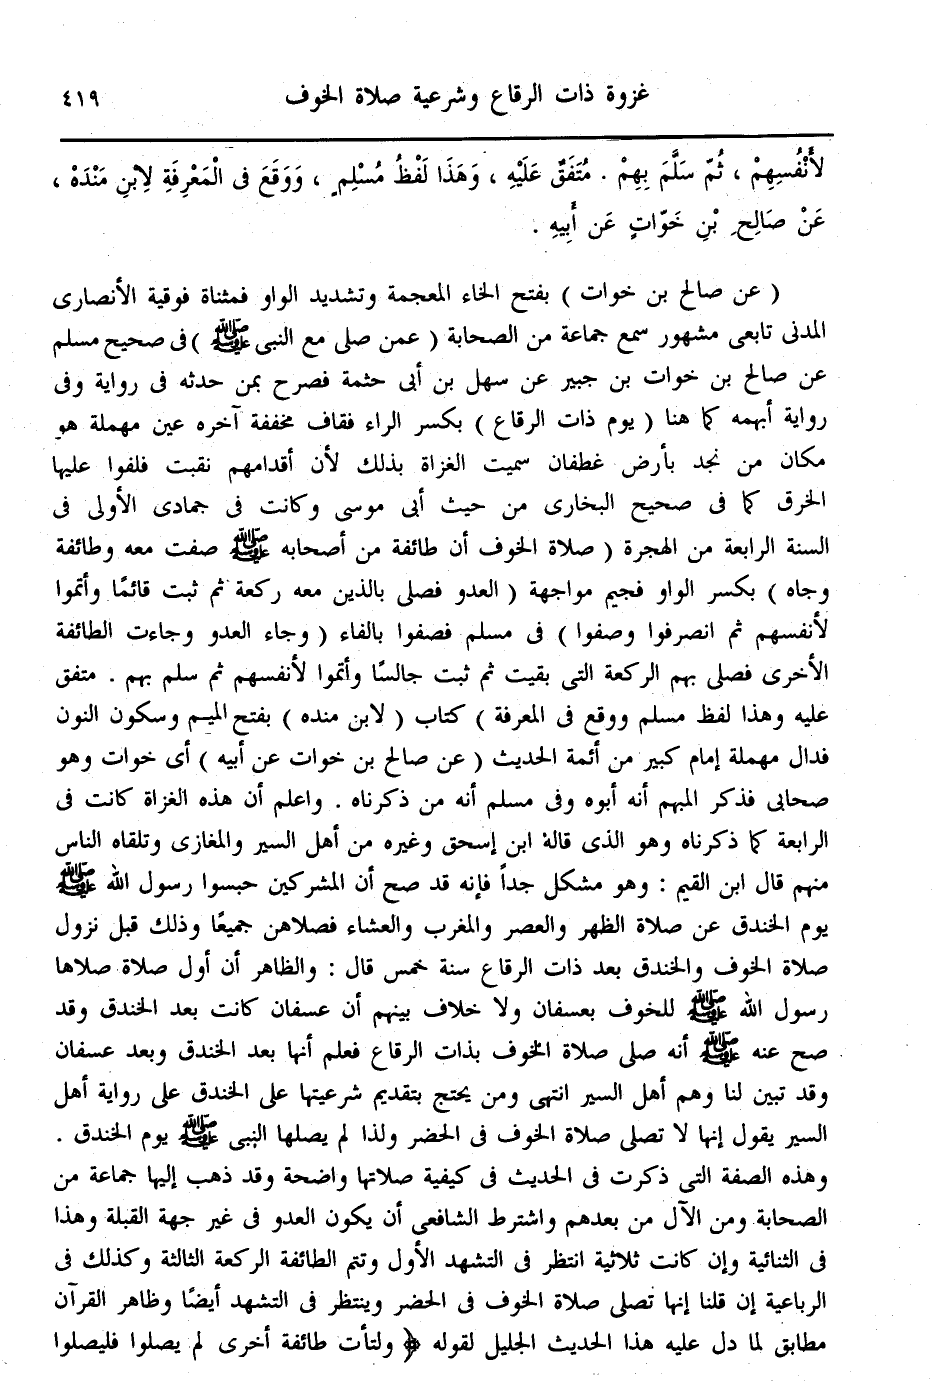 غزوة ذات الرقاع وشرعية صلاة الخوف ٤١٩
لأَنْفُسِهِمْ ، ثُمّ سَلَّمَ بِهِمْ . مُتَفَقٌ عَلَيْهِ ، وَهَذَا لَفْظُ مُسْلِمٍ ، وَوَقَعَ فى الْمَعْرِفَةِ لِابنِ مَنْدَهْ ،
عَنْ صَالِحِ بْنِ خَوّاتٍ عَن أَبِيهِ .
( عن صالح بن خوات ) بفتح الخاء المعجمة وتشديد الواو فمثناة فوقية الأنصارى
المدنى تابعى مشهور سمع جماعة من الصحابة ( عمن صلى مع النبى ﷺ ) فى صحيح مسلم
عن صالح بن خوات بن جبير عن سهل بن أبى حثمة فصرح بمن حدثه فى رواية وفى
رواية أبهمه كما هنا ( يوم ذات الرقاع ) بكسر الراء فقاف مخففة آخره عين مهملة هو
مكان من نجد بأرض غطفان سميت الغزاة بذلك لأن أقدامهم نقبت فلفوا عليها
الخرق كما فى صحيح البخارى من حيث أبى موسى وكانت فى جمادى الأولى فى
السنة الرابعة من الهجرة ( صلاة الخوف أن طائفة من أصحابه ﷺ صفت معه وطائفة
وجاه ) بكسر الواو فجيم مواجهة ( العدو فصلى بالذين معه ركعة ثم ثبت قائمًا وأتموا
لأنفسهم ثم انصرفوا وصفوا ) فى مسلم فصفوا بالفاء ( وجاء العدو وجاءت الطائفة
الأخرى فصلى بهم الركعة التى بقيت ثم ثبت جالسًا وأتموا لأنفسهم ثم سلم بهم . متفق
عليه وهذا لفظ مسلم ووقع فى المعرفة ) كتاب ( لابن منده ) بفتح الميم وسكون النون
فدال مهملة إمام كبير من أئمة الحديث ( عن صالح بن خوات عن أبيه ) أى خوات وهو
صحابى فذكر المبهم أنه أبوه وفى مسلم أنه من ذكرناه . واعلم أن هذه الغزاة كانت فى
الرابعة كما ذكرناه وهو الذى قاله ابن إسحق وغيره من أهل السير والمغازى وتلقاه الناس
منهم قال ابن القيم : وهو مشكل جداً فإنه قد صح أن المشركين حبسوا رسول الله ﷺ
يوم الخندق عن صلاة الظهر والعصر والمغرب والعشاء فصلاهن جميعًا وذلك قبل نزول
صلاة الخوف والخندق بعد ذات الرقاع سنة خمس قال : والظاهر أن أول صلاة صلاها
رسول الله ﷺ للخوف بعسفان ولا خلاف بينهم أن عسفان كانت بعد الخندق وقد
صح عنه ﷺ أنه صلى صلاة الخوف بذات الرقاع فعلم أنها بعد الخندق وبعد عسفان
وقد تبين لنا وهم أهل السير انتهى ومن يحتج بتقديم شرعيتها على الخندق على رواية أهل
السير يقول إنها لا تصلى صلاة الخوف فى الحضر ولذا لم يصلها النبى ﷺ يوم الخندق .
وهذه الصفة التى ذكرت فى الحديث فى كيفية صلاتها واضحة وقد ذهب إليها جماعة من
الصحابة ومن الآل من بعدهم واشترط الشافعى أن يكون العدو فى غير جهة القبلة وهذا
فى الثنائية وإن كانت ثلاثية انتظر فى التشهد الأول وتتم الطائفة الركعة الثالثة وكذلك فى
الرباعية إن قلنا إنها تصلى صلاة الخوف فى الحضر وينتظر فى التشهد أيضًا وظاهر القرآن
مطابق لما دل عليه هذا الحديث الجليل لقوله ﴿ ولتأت طائفة أخرى لم يصلوا فليصلوا